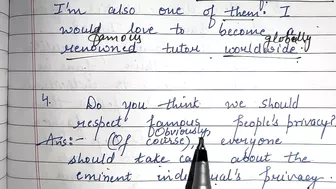 I'm also one of them. I
would love to become
famous globally
renowned tutor worldwide.
4. Do you think we should
respect famous people's privacy?
Obviously
Ans:- (Of course), everyone
should take ca about the
eminent indi al's privacy.